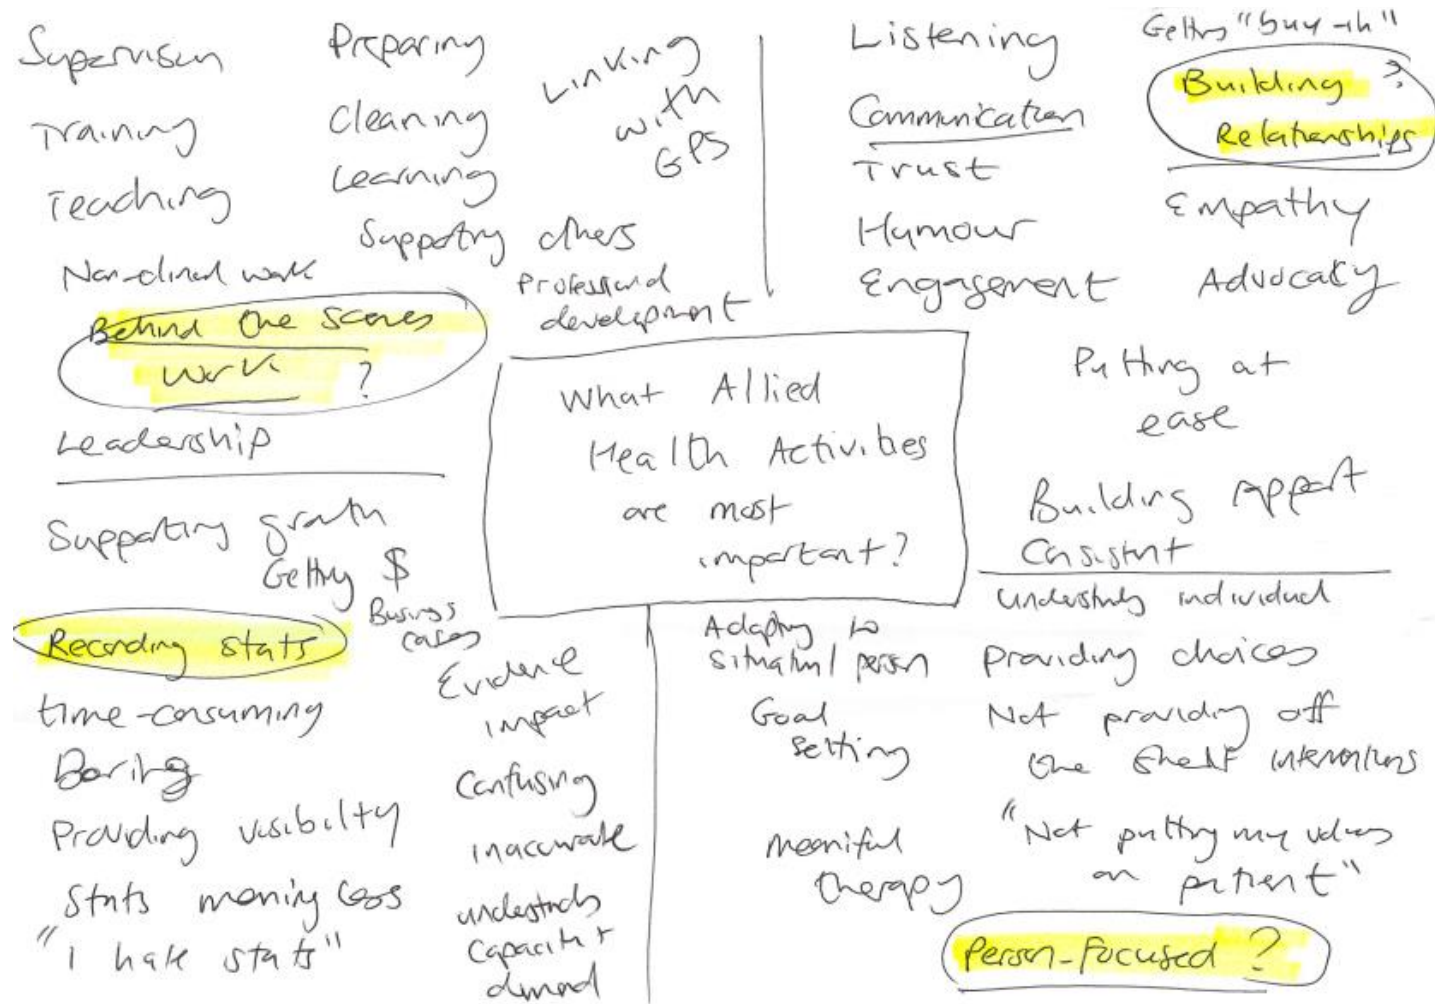 Supervision
Training
Teaching
Non-clinical work
Preparing
Cleaning
Learning
Supporting others
Professional
development
Linking
with
GPs
Behind the scenes
work ?
Leadership
Listening
Communication
Trust
Humour
Engagement
Getting "buy-in"
Building ?
Relationships
Empathy
Advocacy
Putting at
ease
Building rapport
Consistent
What Allied
Health Activities
are most
important?
Supporting growth
Getting $
Business
cases
Recording stats
time-consuming
Boring
Providing visibilty
Stats meaningless
"I hate stats"
Evidence
impact
Confusing
inaccurate
understands
Capacity +
demand
Adapting to
situation/ person
Goal
Setting
meaniful
therapy
understanding individual
Providing choices
Not providing off
the shelf interventions
"Not putting my values
on patient"
Person-focused ?